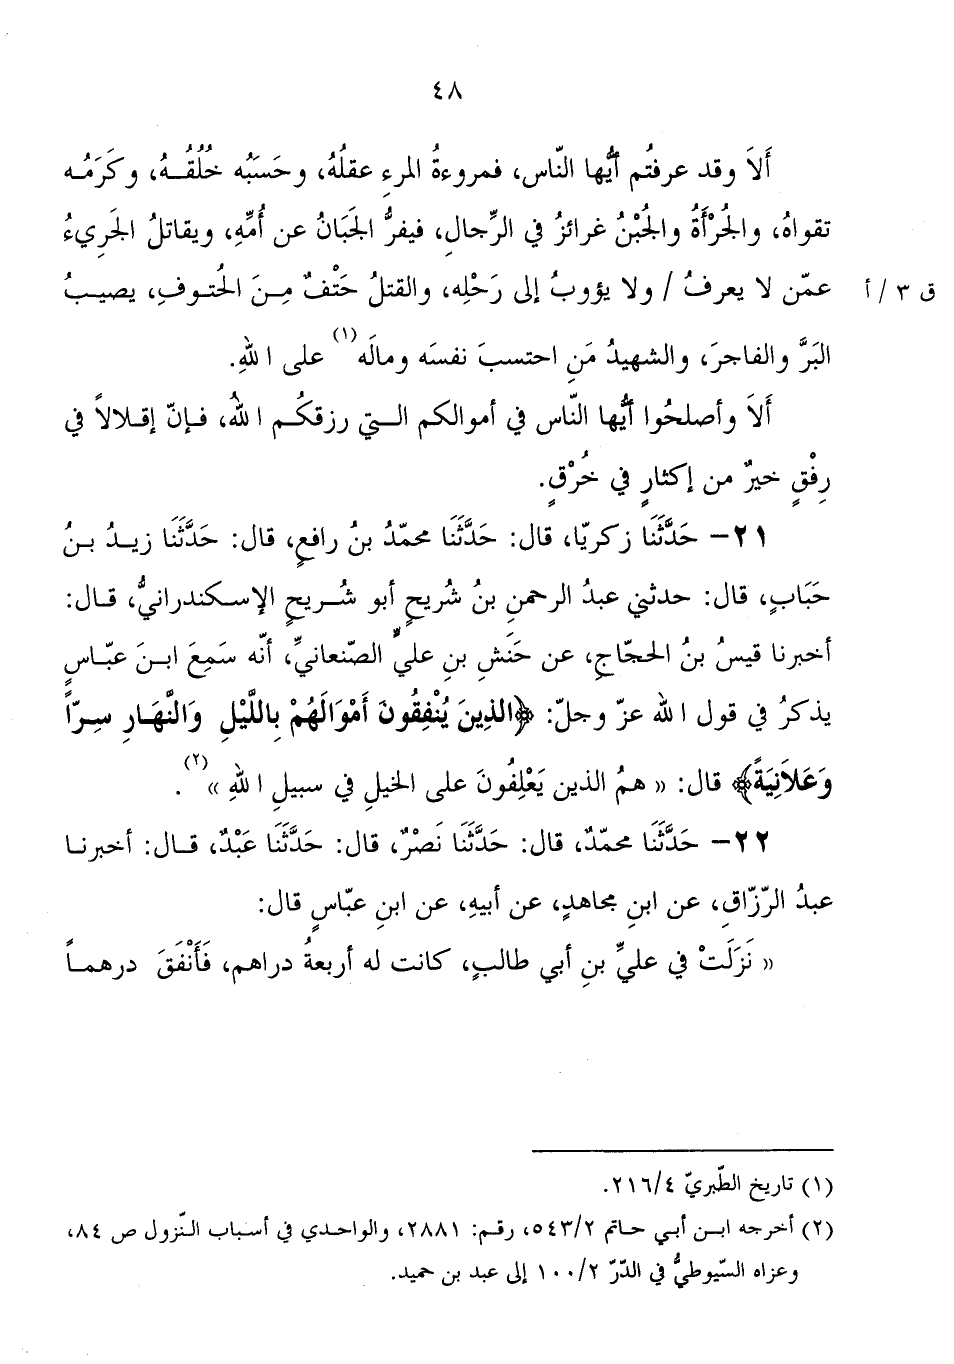 ٤٨
أَلاَ وقد عرفتُم أيُّها النّاس، فمروءةُ المرءِ عقلُهُ، وحَسَبُه خُلُقُــهُ، وكَرَمُـه
تقواهُ، والجُرْأَةُ والجُبْنُ غرائزُ في الرِّجالِ، فيفرُّ الجَبَانُ عن أُمِّهِ، ويقاتلُ الجَرِيءُ
عمّن لا يعرفُ / ولا يؤوبُ إلى رَحْلِه، والقتلُ حَتْفٌ مِـنَ الحُتـوفِ، يصيـبُ ق ٣ / أ
البَرَّ والفاجرَ، والشهيدُ مَنِ احتسبَ نفسَه ومالَه(١) على اللهِ.
أَلاَ وأصلحُوا أيُّها النّاس في أموالكم الـتي رزقكُـم اللهُ، فـإنّ إقـلالاً في
رِفْقٍ خيرٌ من إكثارٍ في خُرْقٍ.
٢١– حَدَّثَنَا زكريّا، قال: حَدَّثَنَا محمّدُ بنُ رافعٍ، قال: حَدَّثَنَا زيـدُ بـنُ
حَبَابٍ، قال: حدثني عبدُ الرحمنِ بنُ شُريحٍ أبو شُـريحٍ الإسـكندرانيُّ، قـال:
أخبرنا قيسُ بنُ الحجّاجِ، عن حَنَشِ بنِ عليٍّ الصّنعانيِّ، أنّه سَمِعَ ابـنَ عبّـاسٍ
يذكرُ في قول الله عزّ وجلّ: ﴿الذِينَ يُنْفِقُونَ أَمْوَالَهُمْ بِاللَّيْلِ وَالنَّهَارِ سِـرّاً
وَعَلاَنِيَةً﴾ قال: « همُ الذين يَعْلِفُونَ على الخيلِ في سبيلِ اللهِ »(٢).
٢٢– حَدَّثَنَا محمّدٌ، قال: حَدَّثَنَا نَصْرٌ، قال: حَدَّثَنَا عَبْدٌ، قـال: أخبرنـا
عبدُ الرّزّاقِ، عن ابنِ مجاهدٍ، عن أبيهِ، عن ابنِ عبّاسٍ قال:
« نَزَلَتْ في عليِّ بنِ أبي طالبٍ، كانت له أربعةُ دراهم، فَأَنْفَقَ درهمـاً
(١) تاريخ الطّبريّ ٢١٦/٤.
(٢) أخرجه ابـن أبـي حـاتم ٥٤٣/٢، رقـم: ٢٨٨١، والواحـدي في أسـباب النّزول ص ٨٤،
وعزاه السّيوطيُّ في الدّرّ ١٠٠/٢ إلى عبد بن حميد.